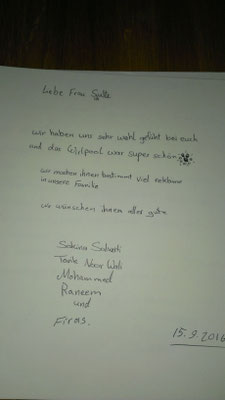 Liebe Frau
wir haben uns sehr wohl gefühlt bei euch
und der Wirlpool war super schön
wir machen ihnen bestimmt viel reklame
in unsere Familie
wir wünschen ihnen alles gute
Sakina
Noor Wali
Mohammed
Raneem
und
Firas.
15.9.2016